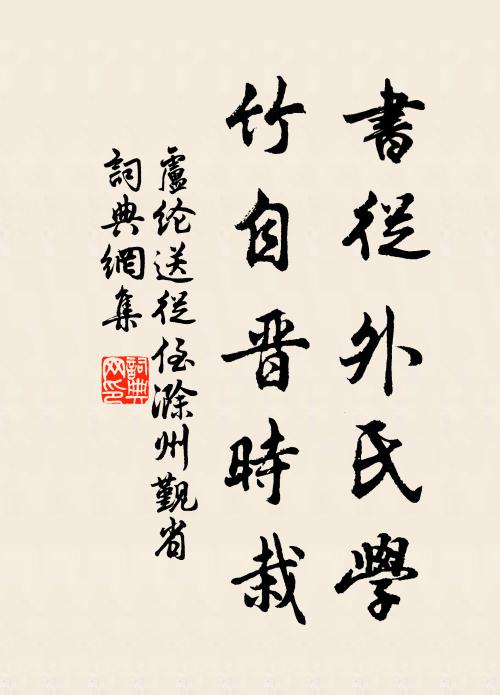 書從外氏學
竹自晋時栽
盧纶送從侄滁州觐省
詞典網集
詞典网印